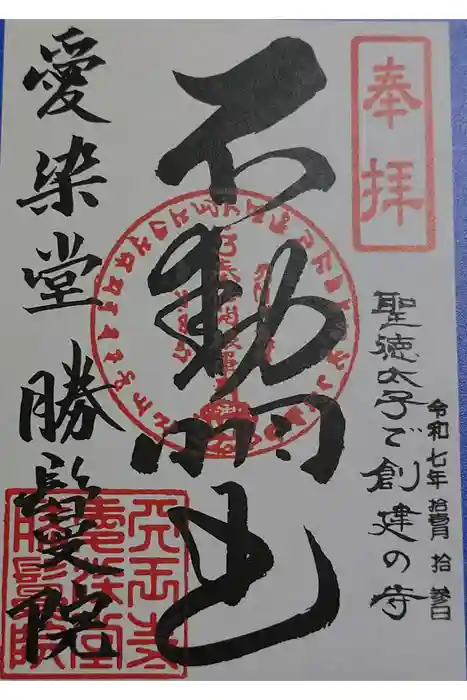 奉拝
聖徳太子ご創建の寺
令和七年 拾壹月 拾 參日
不動明王
愛染堂 勝鬘院
愛染堂
勝鬘院